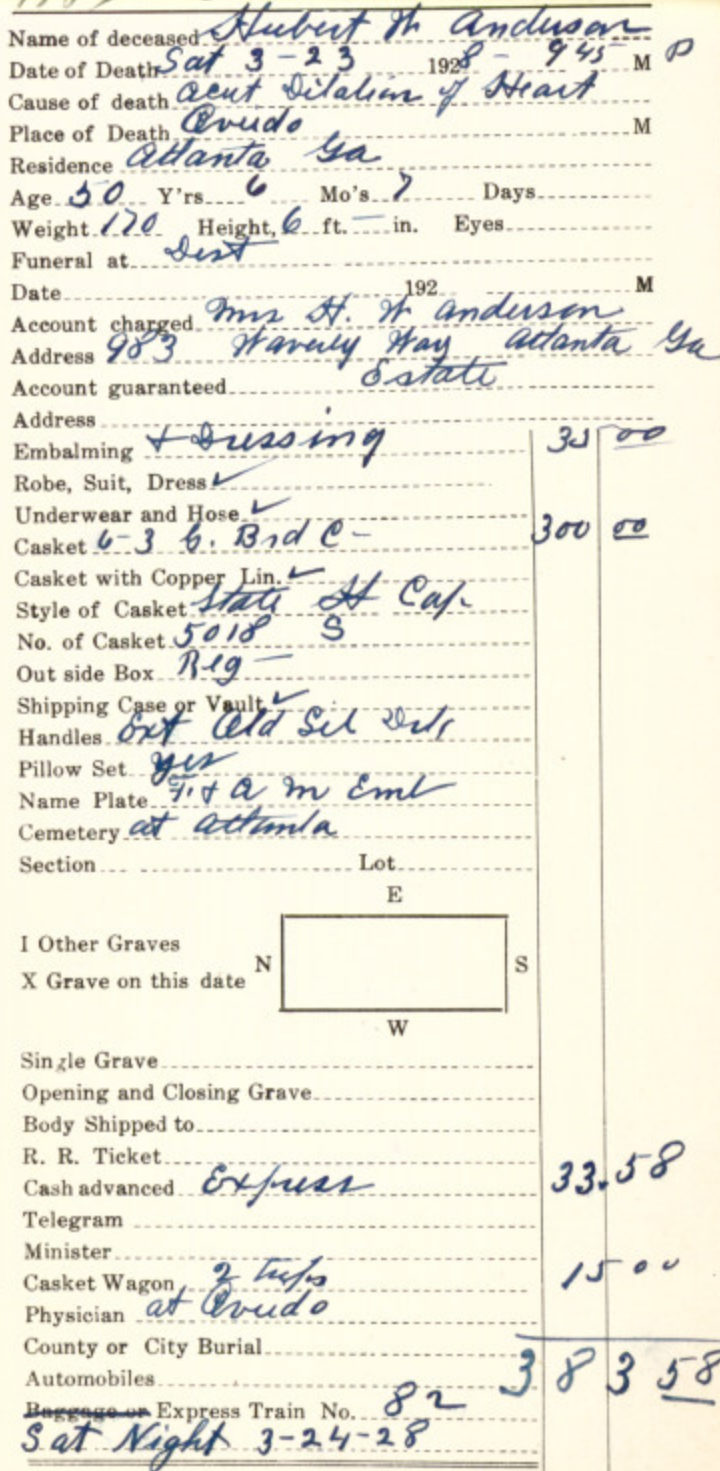 Name of deceased Hubert W Anderson
Date of Death Sat 3-23 1928- 9 45 M P
Cause of death Acut Dilation of Heart
Place of Death Oviedo M
Residence Atlanta Ga
Age 50 Y'rs 6 Mo's 7 Days
Weight 170 Height, 6 ft. — in. Eyes
Funeral at Dist
Date 192 M
Account charged Mrs H. W Anderson
Address 983 Waverly Way Atlanta Ga
Account guaranteed Estate
Address
Embalming + Dressing 35 00
Robe, Suit, Dress ✓
Underwear and Hose ✓
Casket 6-3 C. Brd C- 300 00
Casket with Copper Lin. ✓
Style of Casket State H Cap
No. of Casket 5018 S
Out side Box Reg —
Shipping Case or Vault ✓
Handles Ext Old Sil
Pillow Set yes
Name Plate F. + A M Eml
Cemetery at Atlanta
Section Lot
E
I Other Graves
N S
X Grave on this date
W
Single Grave
Opening and Closing Grave
Body Shipped to
R. R. Ticket
Cash advanced Express 33.58
Telegram
Minister
Casket Wagon 2 trips 15 00
Physician at Oviedo
County or City Burial
Automobiles 383 58
Baggage or Express Train No. 82
Sat Night 3-24-28